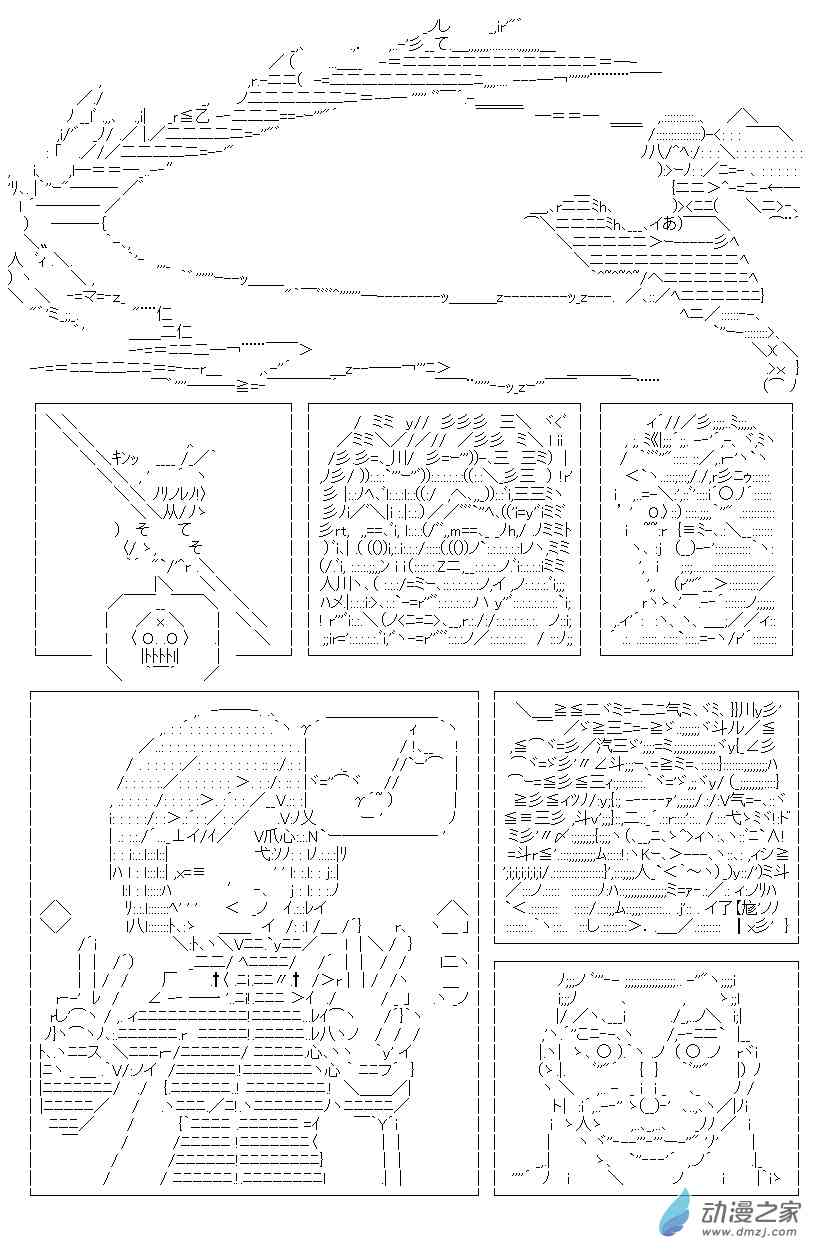 ｷﾝｯ
そ て
そ
动漫之家
www.dmzj.com